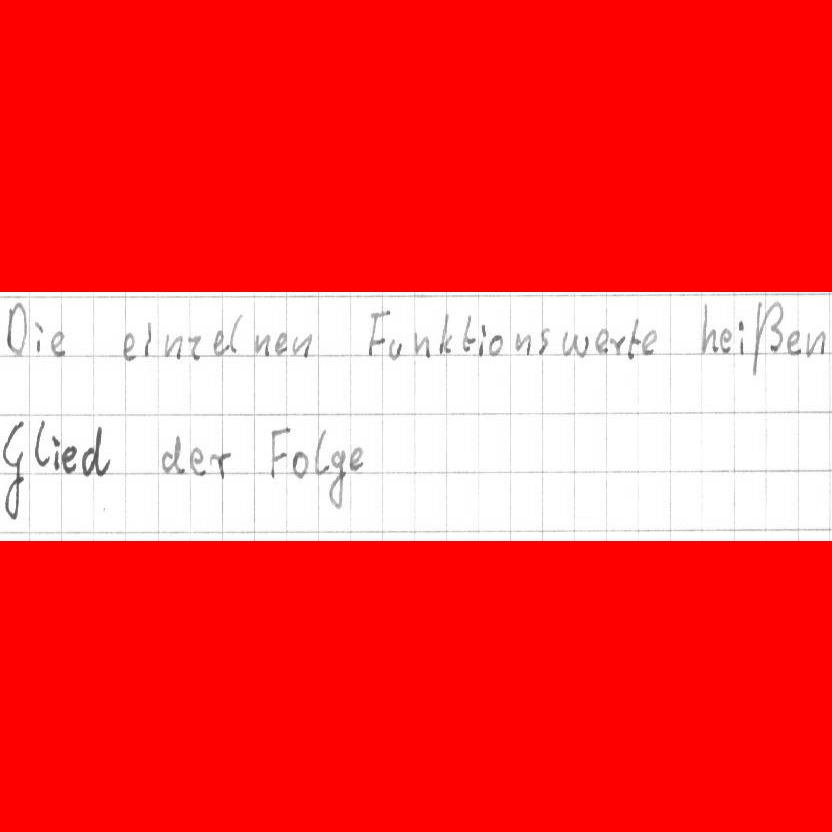 Die einzelnen Funktionswerte heißen
Glied der Folge